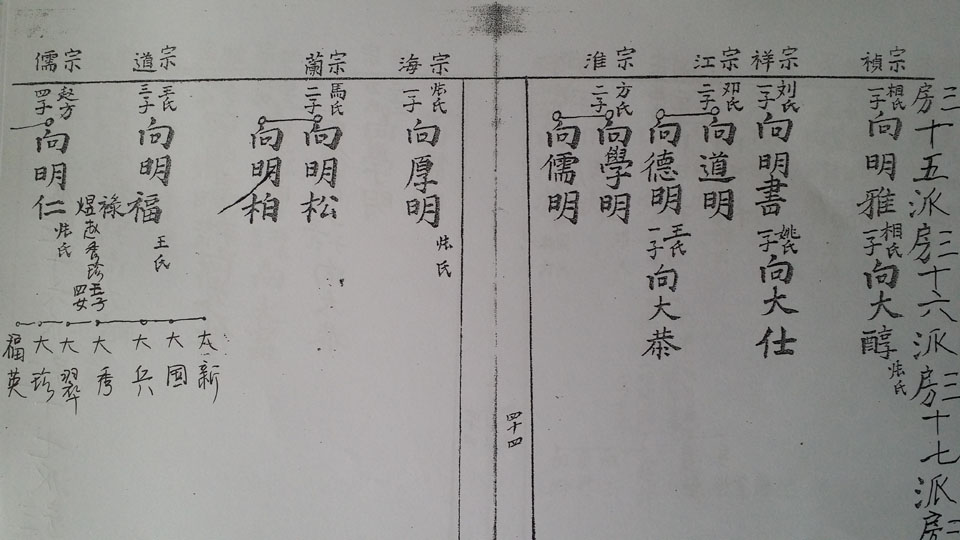 三房十五派三房十六派三房十七派三房
宗禎
相氏
一子
向明雅
相氏
一子
向大醇
張氏
宗祥
刘氏
一子
向明書
姚氏
一子
向大仕
宗江
邓氏
二子
向道明
向德明
王氏
一子
向大恭
宗淮
方氏
二子
向學明
向儒明
四十四
宗海
張氏
一子
向厚明
張氏
宗蘭
馬氏
二子
向明松
向明柏
宗道
王氏
三子
向明福
王氏
禄
煜
赵秀珍
五子
四女
大新
大国
大兵
大秀
大翠
大珍
福英
宗儒
赵方
四子
向明仁
張氏